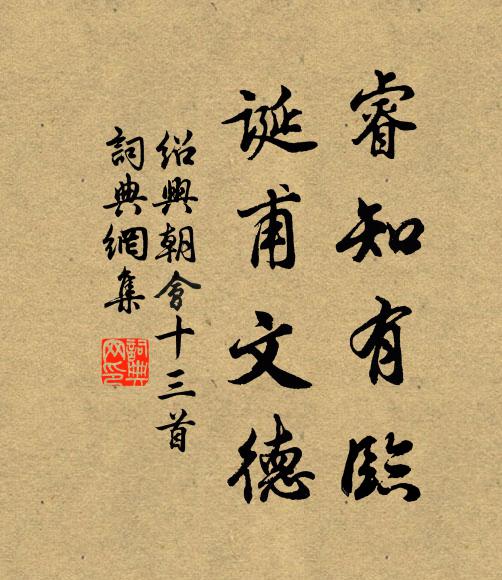 睿知有臨
誕甫文德
紹興朝會十三首
詞典網集
詞典網印